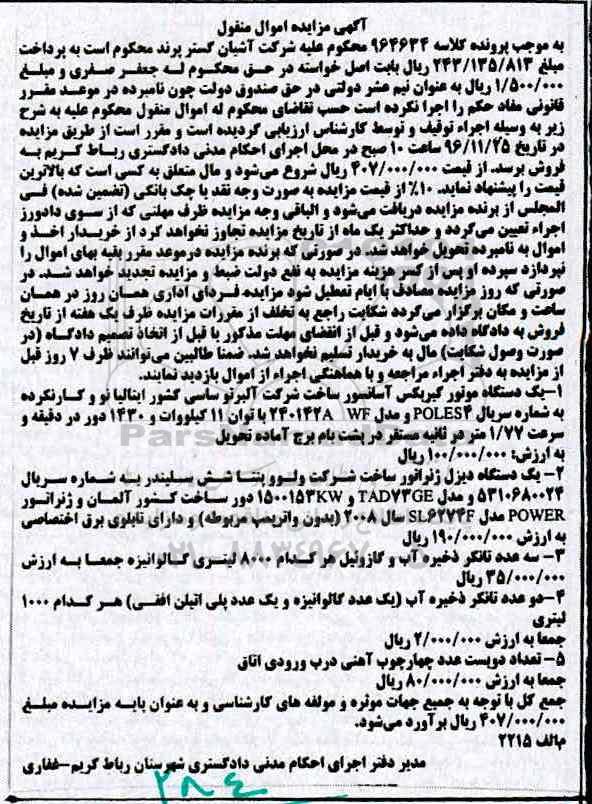 آگهی مزایده اموال منقول
به موجب پرونده کلاسه ۹۶۴۶۳۴ محکوم علیه شرکت آشیان گستر پرند محکوم است به پرداخت
مبلغ ۲۴۳/۱۳۵/۸۱۳ ریال بابت اصل خواسته در حق محکوم له جعفر صفری و مبلغ
۱/۵۰۰/۰۰۰ ریال به عنوان نیم عشر دولتی در حق صندوق دولت چون نامبرده در موعد مقرر
قانونی مفاد حکم را اجرا نکرده است حسب تقاضای محکوم له اموال منقول محکوم علیه به شرح
زیر به وسیله اجراء توقیف و توسط کارشناس ارزیابی گردیده است و مقرر است از طریق مزایده
در تاریخ ۹۶/۱۱/۲۵ ساعت ۱۰ صبح در محل اجرای احکام مدنی دادگستری رباط کریم به
فروش برسد. از قیمت ۴۰۷/۰۰۰/۰۰۰ ریال شروع می‌شود و مال متعلق به کسی است که بالاترین
قیمت را پیشنهاد نماید. ۱۰٪ از قیمت مزایده به صورت وجه نقد یا چک بانکی (تضمین شده) فی
المجلس از برنده مزایده دریافت می‌شود و الباقی وجه مزایده ظرف مهلتی که از سوی دادورز
اجراء تعیین می‌گردد و حداکثر یک ماه از تاریخ مزایده تجاوز نخواهد کرد از خریدار اخذ و
اموال به نامبرده تحویل خواهد شد. در صورتی که برنده مزایده درموعد مقرر بقیه بهای اموال را
نپردازد سپرده او پس از کسر هزینه مزایده به نفع دولت ضبط و مزایده تجدید خواهد شد. در
صورتی که روز مزایده مصادف با ایام تعطیل شود مزایده فردای اداری همان روز در همان
ساعت و مکان برگزار می‌گردد شکایت راجع به تخلف از مقررات مزایده ظرف یک هفته از تاریخ
فروش به دادگاه داده می‌شود و قبل از انقضای مهلت مذکور یا قبل از اتخاذ تصمیم دادگاه (در
صورت وصول شکایت) مال به خریدار تسلیم نخواهد شد. ضمنا طالبین می‌توانند ظرف ۷ روز قبل
از مزایده به دفتر اجراء مراجعه و با هماهنگی اجراء از اموال بازدید نمایند.
۱-یک دستگاه موتور گیربکس آسانسور ساخت شرکت آلبرتو ساسی کشور ایتالیا نو و کارنکرده
به شماره سریال POLES۴ و مدل WF ۲۴۰۱۴۲A با توان ۱۱ کیلووات و ۱۴۳۰ دور در دقیقه و
سرعت ۱/۷۷ متر در ثانیه مستقر در پشت بام برج آماده تحویل
به ارزش: ۱۰۰/۰۰۰/۰۰۰ ریال
۲- یک دستگاه دیزل ژنراتور ساخت شرکت ولوو پنتا شش سیلندر به شماره سریال
۵۳۱۰۶۸۰۰۲۴ و مدل TAD۷۳GE و ۱۵۰۰۱۵۳KW دور ساخت کشور آلمان و ژنراتور
POWER مدل SL۶۲۷۴F سال ۲۰۰۸ (بدون واتریمپ مربوطه) و دارای تابلوی برق اختصاصی
به ارزش ۱۹۰/۰۰۰/۰۰۰ ریال
۳- سه عدد تانکر ذخیره آب و گازوئیل هر کدام ۸۰۰۰ لیتری گالوانیزه جمعا به ارزش
۳۵/۰۰۰/۰۰۰ ریال
۴-دو عدد تانکر ذخیره آب (یک عدد گالوانیزه و یک عدد پلی اتیلن افقی) هر کدام ۱۰۰۰
لیتری
جمعا به ارزش ۲/۰۰۰/۰۰۰ ریال
۵- تعداد دویست عدد چهارچوب آهنی درب ورودی اتاق
جمعا به ارزش ۸۰/۰۰۰/۰۰۰ ریال
جمع کل با توجه به جمیع جهات موثره و مولفه های کارشناسی و به عنوان پایه مزایده مبلغ
۴۰۷/۰۰۰/۰۰۰ ریال برآورد می‌شود.
م/الف ۲۲۱۵
مدیر دفتر اجرای احکام مدنی دادگستری شهرستان رباط کریم-غفاری
۲۸۴